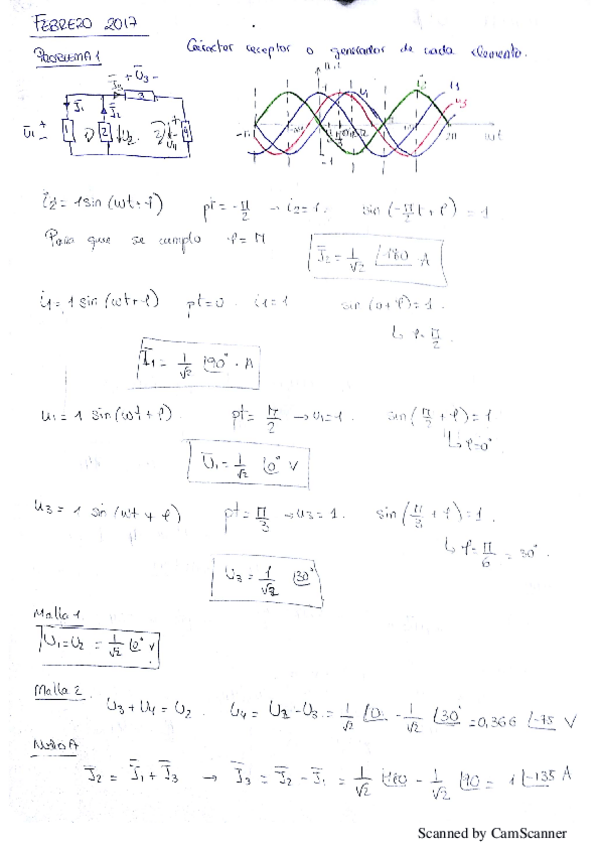 FEBRERO 2017
PROBLEMA 1
Carácter receptor o generador de cada elemento.
i2 = 1 sin(ωt + φ) pt = -π/2 → i2 = 1. sin(-π/2 + φ) = 1
Para que se cumpla φ = π
I̅2 = 1/√2 ∠-180 A
i1 = 1 sin(ωt + φ) pt = 0 . i1 = 1 sin(0 + φ) = 1.
↳ φ = π/2.
I̅1 = 1/√2 ∠90° · A
u1 = 1 sin(ωt + φ). pt = π/2 → u1 = 1. sin(π/2 + φ) = 1
↳ φ = 0°
U̅1 = 1/√2 ∠0° V
u3 = 1 sin(ωt + φ) pt = π/3 → u3 = 1. sin(π/3 + φ) = 1.
↳ φ = π/6 = 30°.
U3 = 1/√2 ∠30°
Malla 1
U1 = U2 = 1/√2 ∠0° V
Malla 2
U3 + U4 = U2 . U4 = U2 - U3 = 1/√2 ∠0 - 1/√2 ∠30° = 0,366 ∠-75 V
Nudo A
I̅2 = I̅1 + I̅3 → I̅3 = I̅2 - I̅1 = 1/√2 ∠180 - 1/√2 ∠90 = 1 ∠-135 A
Scanned by CamScanner